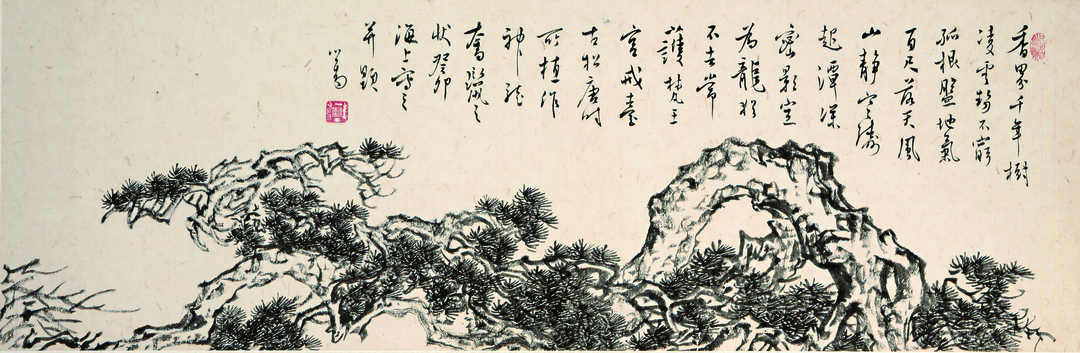 香界千年樹
凌雲勢不窮
孤根盤地氣
百尺落天風
山靜寒濤
起潭深
密影空
為龍猶
不去常
護梵王
宮戒臺
古松唐時
所植作
神龍
奮鬣之
狀癸卯
海上寫之
并題
心畬